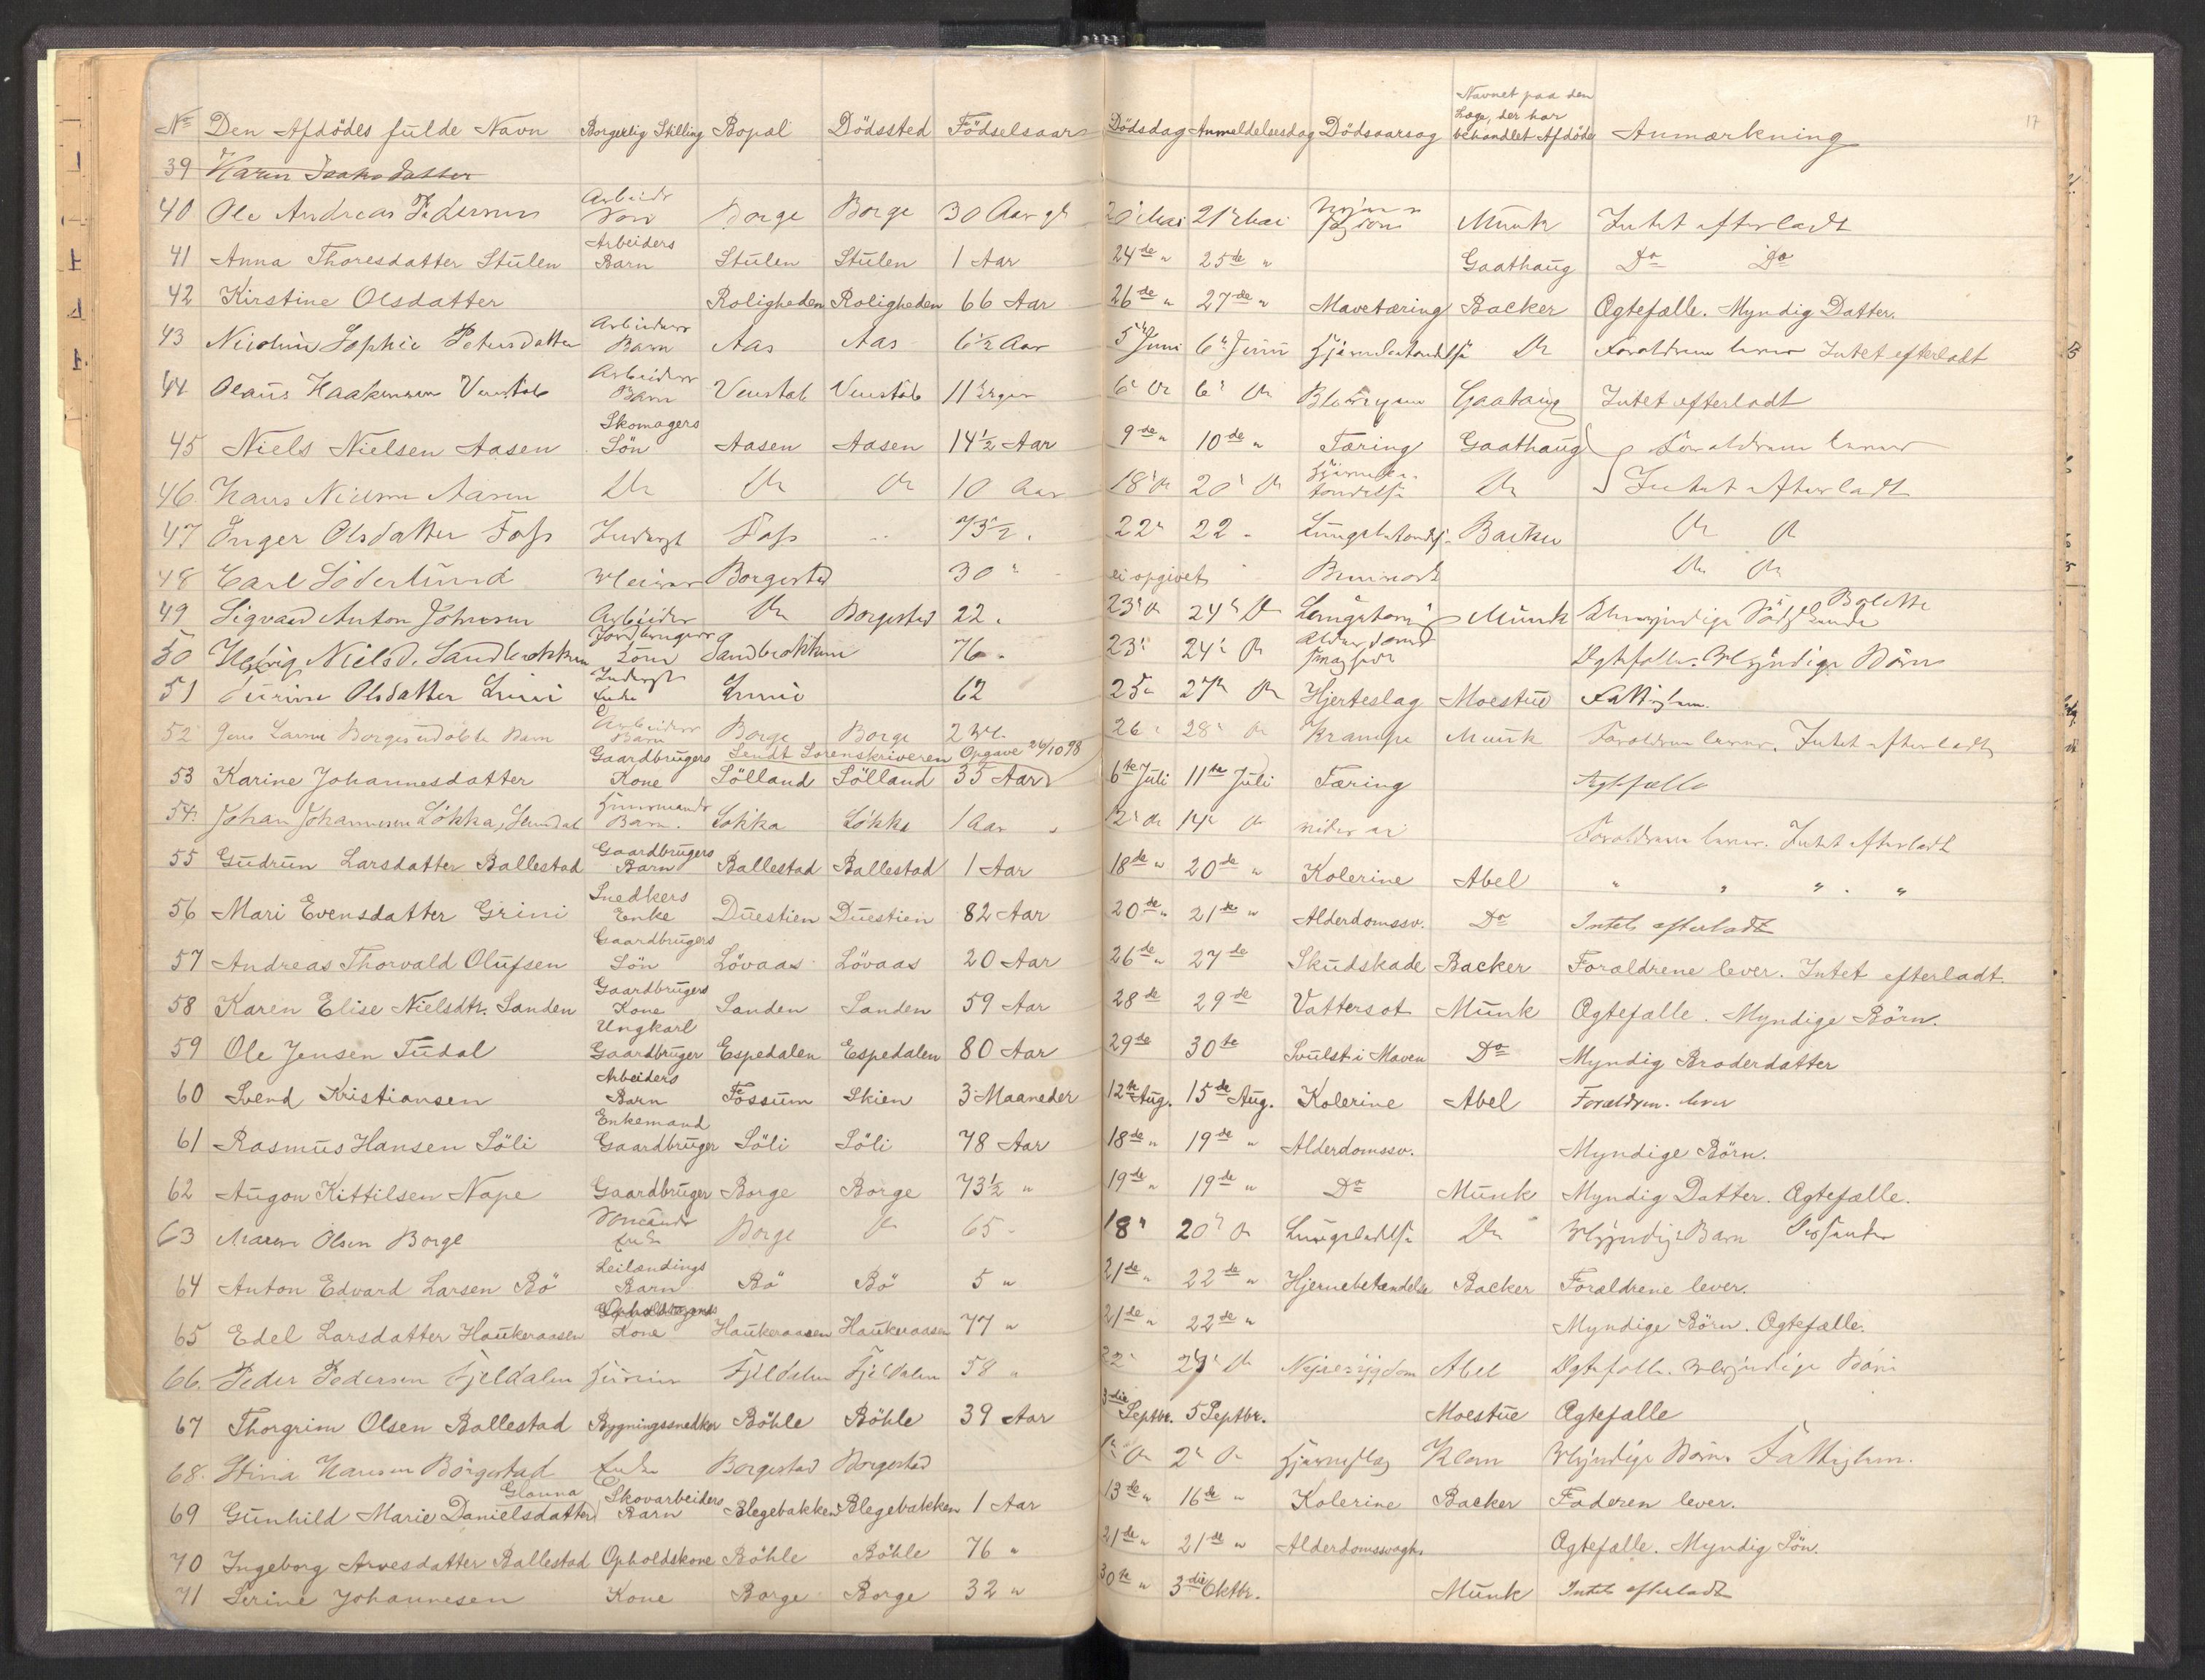 17
Navnet paa den Læge, der har behandlet Afdøde
No Den Afdödes fulde Navn Borgerlig Stilling Bopæl Dödssted Födselsaar Dödsdag Anmeldelsesdag Dödsaarsag Anmærkning
39 Karen Isaksdatter
40 Ole Andreas Pedersen Arbeider Borge Borge 30 Aar 20 Mai 21 Mai Munk Intet efterladt
41 Anna Thoresdatter Stulen Arbeiders Barn Stulen Stulen 1 Aar 24de " 25de " Gaathaug Do Do
42 Kirstine Olsdatter Roligheden Roligheden 66 Aar 26de " 27de " Mavetæring Backer Ægtefælle. Myndig Datter.
43 Nicoline Sophie Petersdatter Arbeiders Barn Aas Aas 6½ Aar 5 Juni 6 Juni Hjernebetændelse Do Forældrene lever Intet efterladt
44 Olaus Haakensen Venstøb Arbeiders Barn Venstøb Venstøb 11 6 Do 6 Do Gaataug Intet efterladt
45 Niels Nielsen Aasen Skomagers Sön Aasen Aasen 14½ Aar 9de " 10de " Tæring Gaathaug Forældrene lever
46 Hans Nielsen Aasen Do Do Do 10 Aar 18 Do 20 Do Hjernebetændelse Do Intet efterladt
47 Inger Olsdatter Foss Inderst Foss " 73½ . 22 22 - Lungebetændelse Backer Do Do
48 Carl Söderlund Borgestad 30 " ei opgivet Do Do
49 Sigvard Anton Johnsen Arbeider Do Borgestad 22 . 23 Do 24 Do Munk Umyndige
50 Hedvig Nielsd. Sandbrækken Jordbrugers Kone Sandbrækken 76 - 23 24 Do Alderdoms svaghed Ægtefælle. Myndige Börn
51 Olsdatter Inderst Enke 62 25 27 Do Hjerteslag Moestue Fattiglem.
52 Jens Larsen Borges udöbte Barn Arbeiders Barn Borge Borge 2 26 28 Do Krampe Munk Forældrene lever. Intet efterladt
Sendt Sorenskriveren Opgave 26/10 98
53 Karine Johannesdatter Gaardbrugers Kone Sölland Sölland 35 Aar 6te Juli 11te Juli Tæring Ægtefælle
54. Johan Johannesen Løkka, Barn. Løkka Løkka 1 Aar 12 Do 14 Do Forældrene lever. Intet efterladt
55 Gudrun Larsdatter Ballestad Gaardbrugers Barn Ballestad Ballestad 1 Aar 18de " 20de " Kolerine Abel " " " "
56 Mari Evensdatter Grini Snedkers Enke Duestien Duestien 82 Aar 20de " 21de " Alderdomssv. Do Intet efterladt
57 Andreas Thorvald Olufsen Gaardbrugers Sön Lövaas Lövaas 20 Aar 26de " 27de Skudskade Backer Forældrene lever. Intet efterladt.
58 Karen Elise Nielsdtr. Sanden Gaardbrugers Kone Sanden Sanden 59 Aar 28de 29de Vattersot Munk Ægtefælle. Myndige Börn.
59 Ole Jensen Tudal Ungkarl Gaardbruger Espedalen Espedalen 80 Aar 29de 30te Svulst i Maven Do Myndig Broderdatter
60 Svend Kristiansen Arbeiders Barn Fossum Skien 3 Maaneder 12te Aug. 15de Aug. Kolerine Abel Forældren. lever
61 Rasmus Hansen Söli Enkemand Gaardbruger Söli Söli 78 Aar 18de " 19de " Alderdomssv. Myndige Börn.
62 Augon Kittilsen Nape Gaardbruger Borge Borge 73½ " 19de " 19de " Do Munk Myndig Datter. Ægtefælle.
63 Maren Olsen Borge Enke Borge Do 65 - 18 20 Do Do Myndige Barn
64 Anton Edvard Larsen Bö Leilændings Barn Bö Bö 5 " 21de " 22de " Hjernebetændelse Backer Forældrene lever.
65 Edel Larsdatter Haukeraasen Kone Haukeraasen Haukeraasen 77 " 21de " 22de " Myndige Börn. Ægtefælle.
66. Peder Pedersen Fjeldalen Fjeldalen Fjeldalen 58 " 22 24 Do Nyresygdom Abel Ægtefælle. Myndige Börn
67 Thorgrim Olsen Ballestad Bygningssnedker Böhle Böhle 39 Aar 3die Septbr. 5 Septbr. Moestue Ægtefælle
68. Stina Hansen Börgestad Enke Borgestad Borgestad 1 Do 2 Do Hjerneslag Klem Myndige Börn. Fattiglem.
69 Gunhild Marie Danielsdatter Glanna Skovarbeiders Barn Blegebakken Blegebakken 1 Aar 13de " 16de " Kolerine Backer Faderen lever.
70 Ingeborg Arvesdatter Ballestad Opholdskone Böhle Böhle 76 " 21de " 21de " Alderdomssvagh. Ægtefælle. Myndig Sön.
71 Serine Johannesen Kone Borge Borge 32 " 30te " 3die Oktbr. Munk Intet efterladt